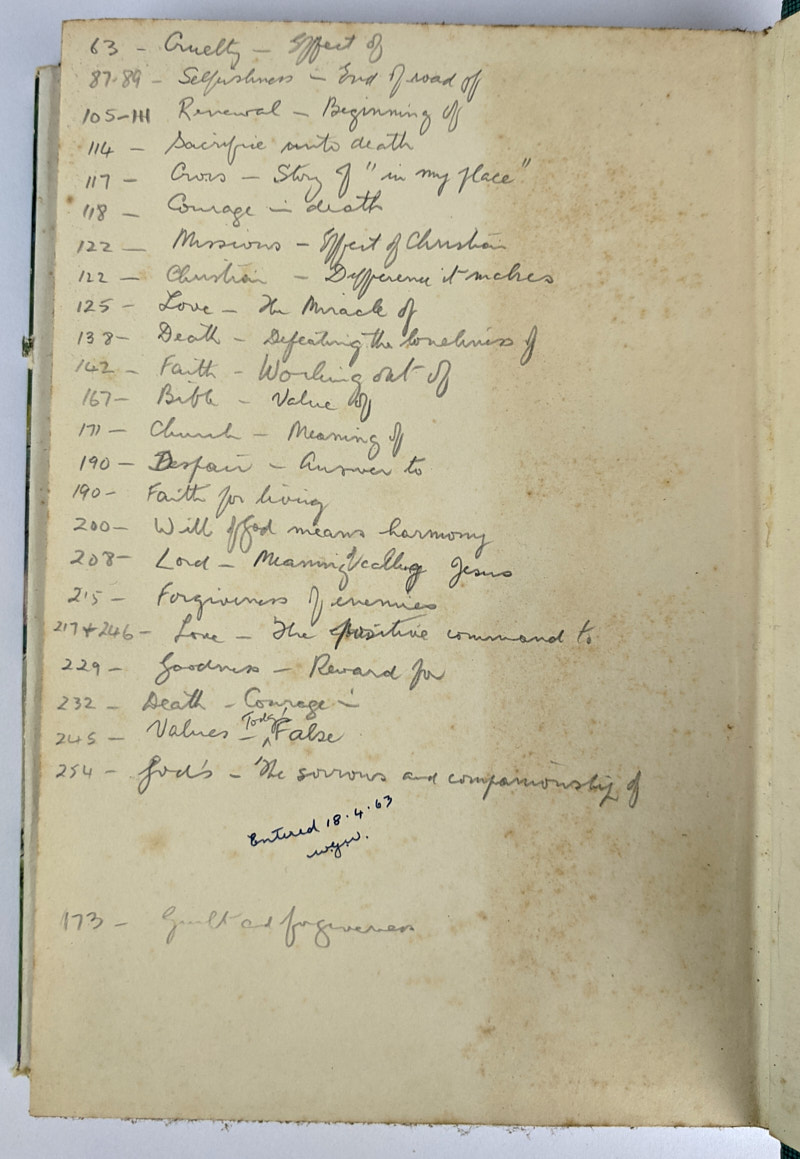 63 - Cruelty - Effect of
87-89 - Selfishness - End of road of
105-111 Renewal - Beginning of
114 - Sacrifice unto death
117 - Cross - Story of "in my place"
118 - Courage in death
122 - Missions - Effect of Christian
122 - Christian - Difference it makes
125 - Love - The Miracle of
138 - Death - Defeating the loneliness of
142 - Faith - Working out of
167 - Bible - Value of
171 - Church - Meaning of
190 - Despair - Answer to
190 - Faith for living
200 - Will of God means harmony
208 - Lord - Meaning of calling Jesus
215 - Forgiveness of enemies
217 + 246 - Love - The positive command to
229 - Goodness - Reward for
232 - Death - Courage in
245 - Values - Today's False
254 - God's - The sorrows and companionship of
Entered 18.4.63
173 - Guilt and forgiveness